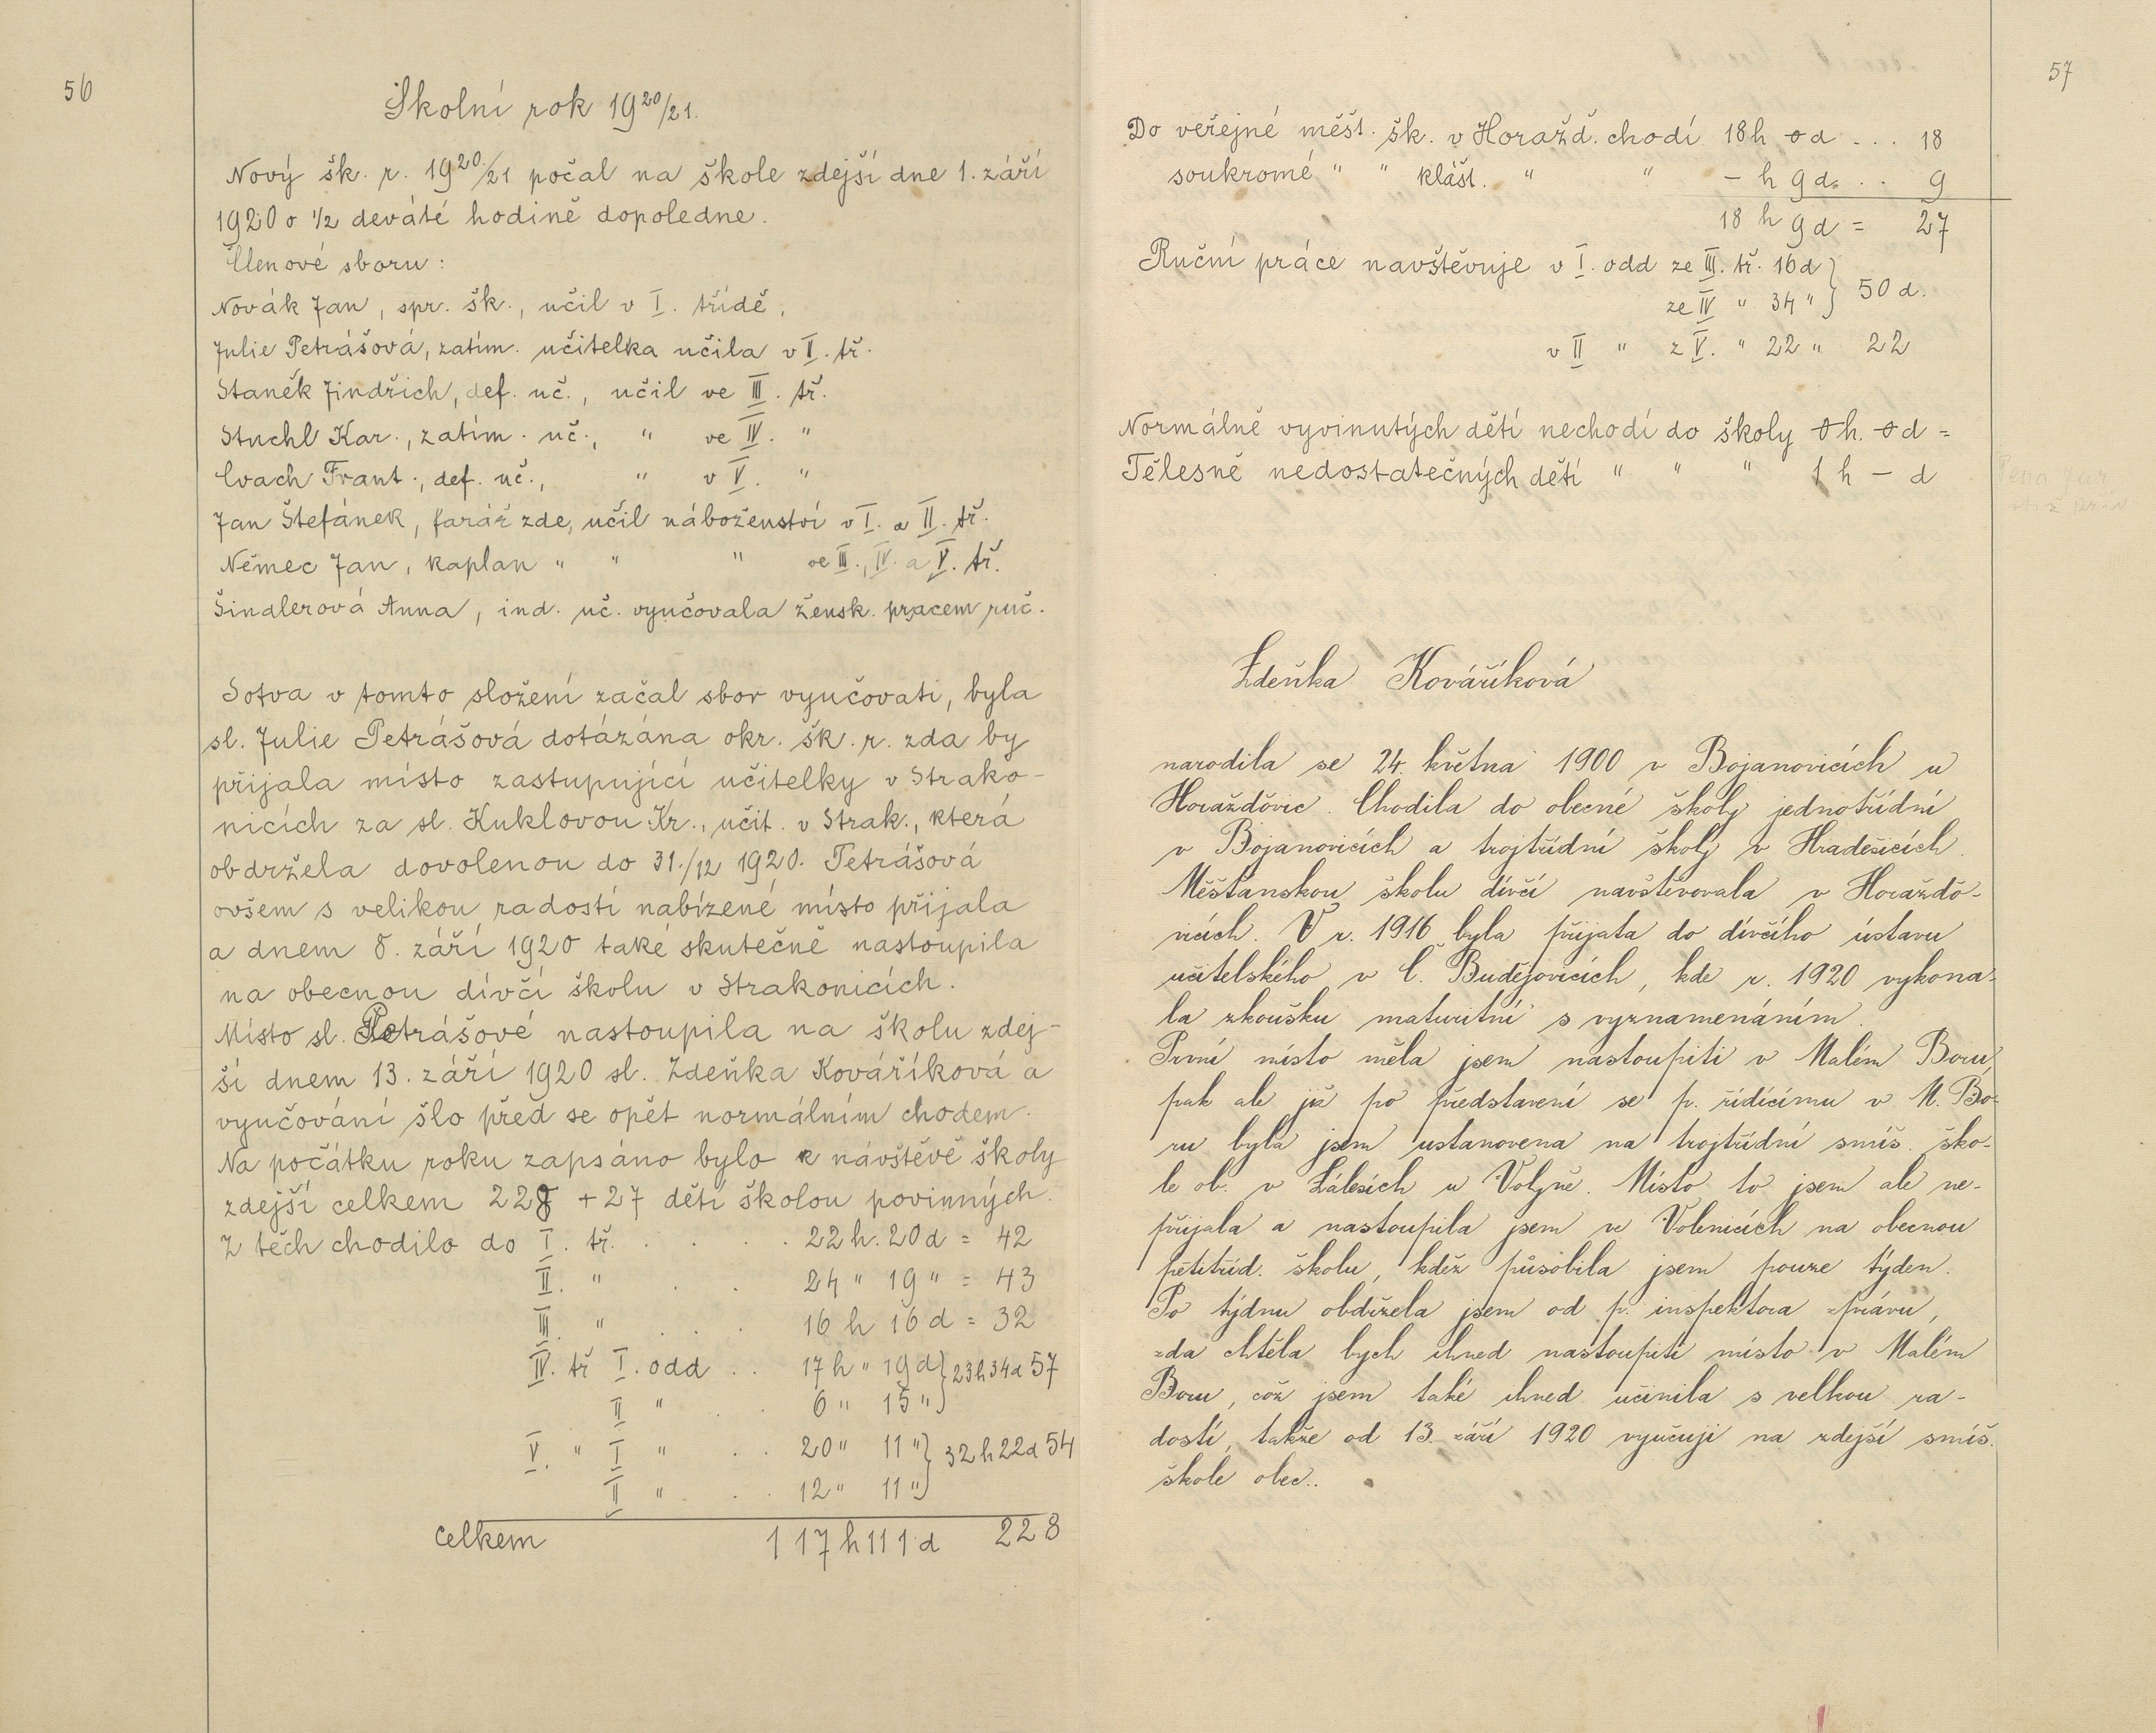 56
Školní rok 1920/21.
Nový šk. r. 1920/21 počal na škole zdejší dne 1. září
1920 o 1/2 deváté hodině dopoledne.
Členové sboru:
Novák Jan, spr. šk., učil v I. třídě,
Julie Petrášová, zatím. učitelka učila v II. tř.
Staněk Jindřich, def. uč., učil ve III. tř.
Stuchl Kar., zatím. uč., " ve IV. "
Cvach Frant., def. uč., " v V. "
Jan Štefánek, farář zde, učil náboženství v I. a II. tř.
Němec Jan, kaplan " " " ve III., IV. a V. tř.
Šindlerová Anna, ind. uč. vyučovala žensk. pracem ruč.
Sotva v tomto složení začal sbor vyučovati, byla
sl. Julie Petrášová dotázána okr. šk. r. zda by
přijala místo zastupující učitelky v Strako-
nicích za sl. Kuklovou Kr., učit. v Strak., která
obdržela dovolenou do 31./12 1920. Petrášová
ovšem s velikou radostí nabízené místo přijala
a dnem 8. září 1920 také skutečně nastoupila
na obecnou dívčí školu v Strakonicích.
Místo sl. Petrášové nastoupila na školu zdej-
ší dnem 13. září 1920 sl. Zdeňka Kováříková a
vyučování šlo před se opět normálním chodem.
Na počátku roku zapsáno bylo k návštěvě školy
zdejší celkem 228 + 27 dětí školou povinných.
Z těch chodilo do I. tř. . . . . 22 h. 20 d = 42
II. " . . 24 " 19 " = 43
III. " . . . 16 h 16 d = 32
IV. tř I. odd . . 17 h " 19 d } 23 h 34 d 57
II " . . 6 " 15 " }
V. " I " . . 20 " 11 " } 32 h 22 d 54
II " . . 12 " 11 " }
Celkem 117 h 111 d 228
57
Do veřejné měšt. šk. v Horažď. chodí 18 h 0 d . . . 18
soukromé " " klášt. " " – h 9 d. . . 9
18 h 9 d = 27
Ruční práce navštěvuje v I. odd ze III. tř. 16 d } 50 d.
ze IV " 34 " }
v II " z V. " 22 " 22
Normálně vyvinutých dětí nechodí do školy 0 h. 0 d =
Tělesně nedostatečných dětí " " " 1 h – d
Zdeňka Kováříková
narodila se 24. května 1900 v Bojanovicích u
Horažďovic. Chodila do obecné školy jednotřídní
v Bojanovicích a trojtřídní školy v Hradešicích.
Měšťanskou školu dívčí navštěvovala v Horažďo-
vicích. V r. 1916 byla přijata do dívčího ústavu
učitelského v Č. Budějovicích, kde r. 1920 vykona-
la zkoušku maturitní s vyznamenáním.
První místo měla jsem nastoupiti v Malém Boru,
pak ale již po představení se p. řídícímu v M. Bo-
ru byla jsem ustanovena na trojtřídní smíš. ško-
le ob. v Zálesích u Volyně. Místo to jsem ale ne-
přijala a nastoupila jsem ve Volenicích na obecnou
pětitříd. školu, kdež působila jsem pouze týden.
Po týdnu obdržela jsem od p. inspektora zprávu,
zda chtěla bych ihned nastoupiti místo v Malém
Boru, což jsem také ihned učinila s velkou ra-
dostí, takže od 13. září 1920 vyučuji na zdejší smíš.
škole obec..